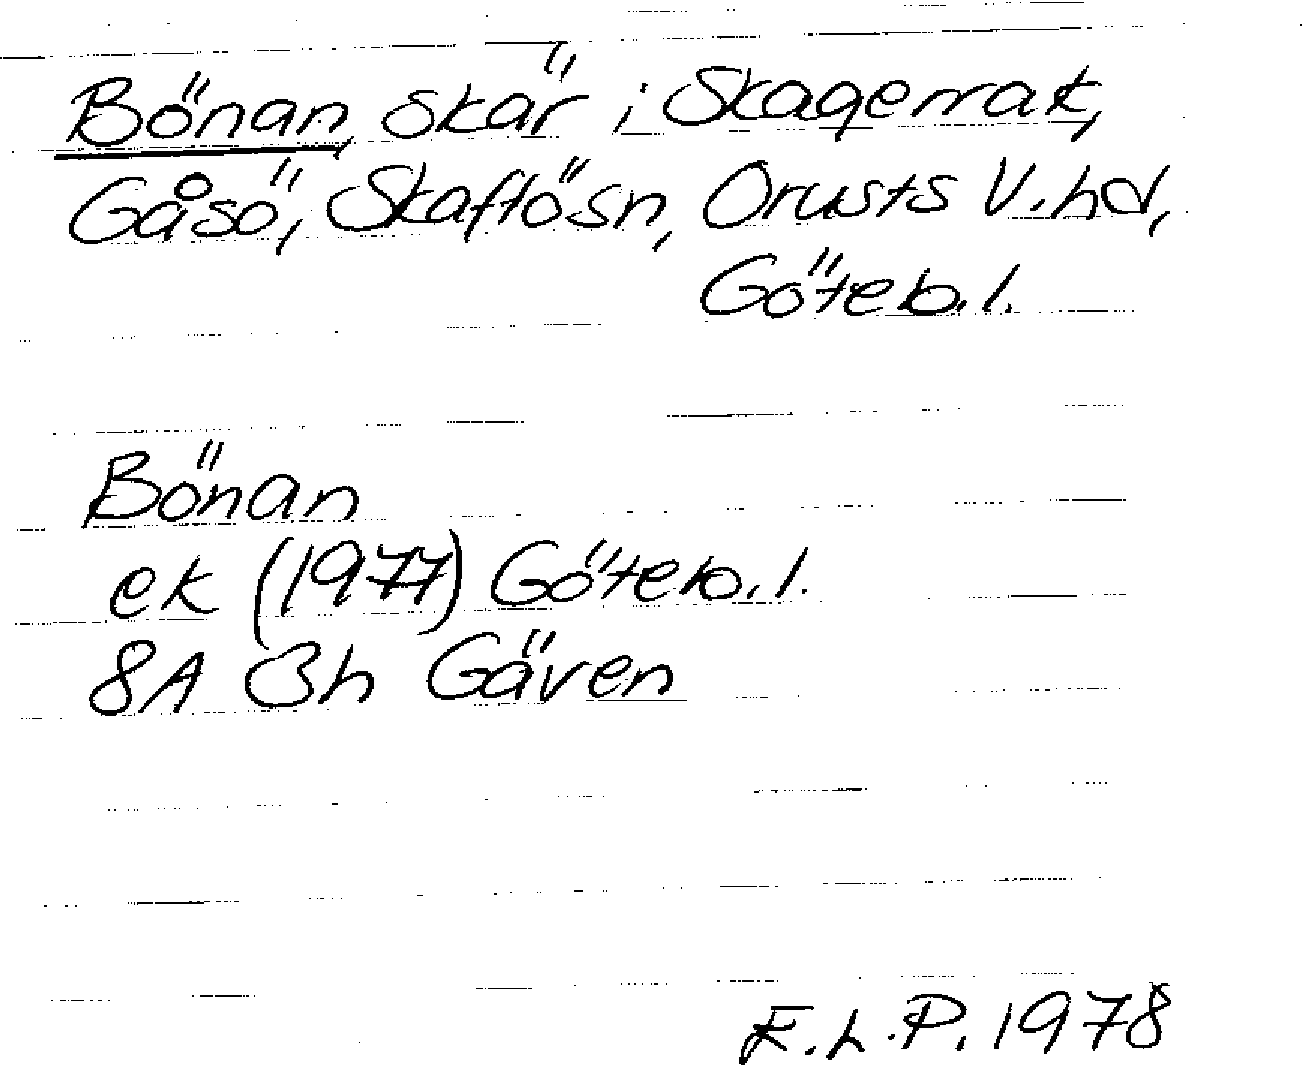 Bönan, skär i Skagerrak,
Gåsö, Skaftösn, Orusts V.hd,
Göteb.l.
Bönan
ek (1977) Göteb.l.
8A 3h Gäven
F.L.P. 1978